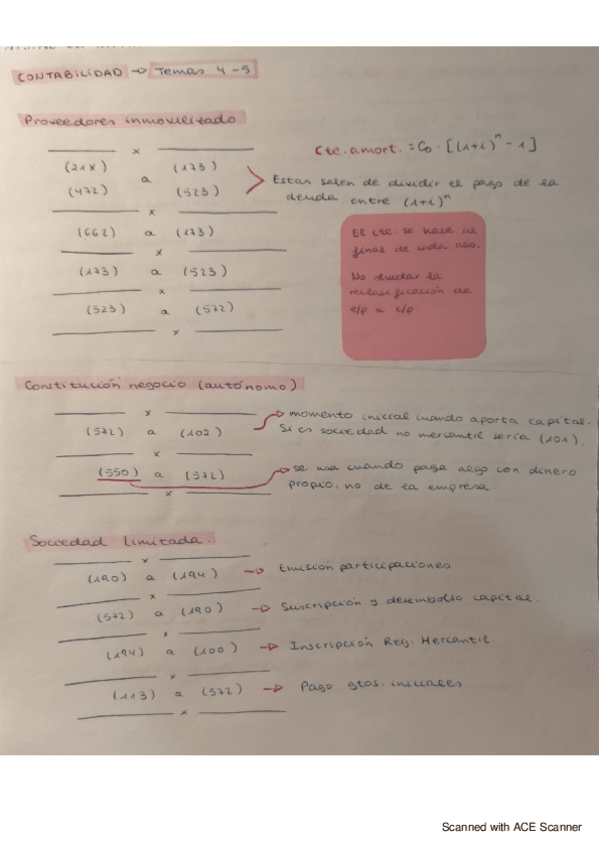 CONTABILIDAD → Temas 4-5
Proveedores inmovilizado.
x
(21x) a (173)
(472) (523)
Cte. amort. = Co · [(1+i)^n - 1]
Estas salen de dividir el pago de la
deuda entre (1+i)^n
x
(662) a (173)
x
(173) a (523)
x
(523) a (572)
x
El cte. se hace al
final de cada año.
No olvidar la
reclasificación de
l/p a c/p
Constitución negocio (autónomo)
x
(572) a (102)
momento inicial cuando aporta capital.
Si es sociedad no mercantil sería (101).
x
(550) a (572)
se usa cuando paga algo con dinero
propio, no de la empresa.
x
Sociedad Limitada.
x
(190) a (194) → Emisión participaciones
x
(572) a (190) → Suscripción y desembolso capital.
x
(194) a (100) → Inscripción Reg. Mercantil
x
(113) a (572) → Pago gtos. iniciales
x
Scanned with ACE Scanner